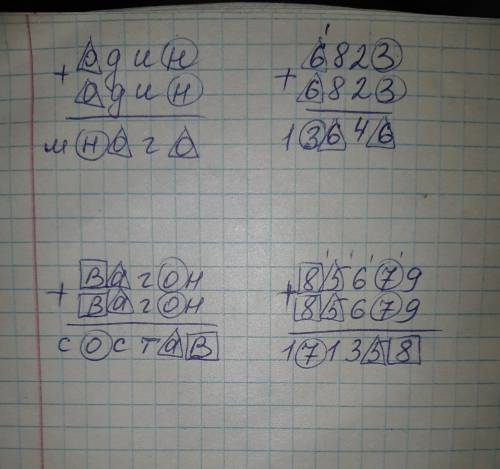 один
+
один
много
1
6823
+
6823
13646
вагон
+
вагон
состав
1 1 1 1
85679
+
85679
171358